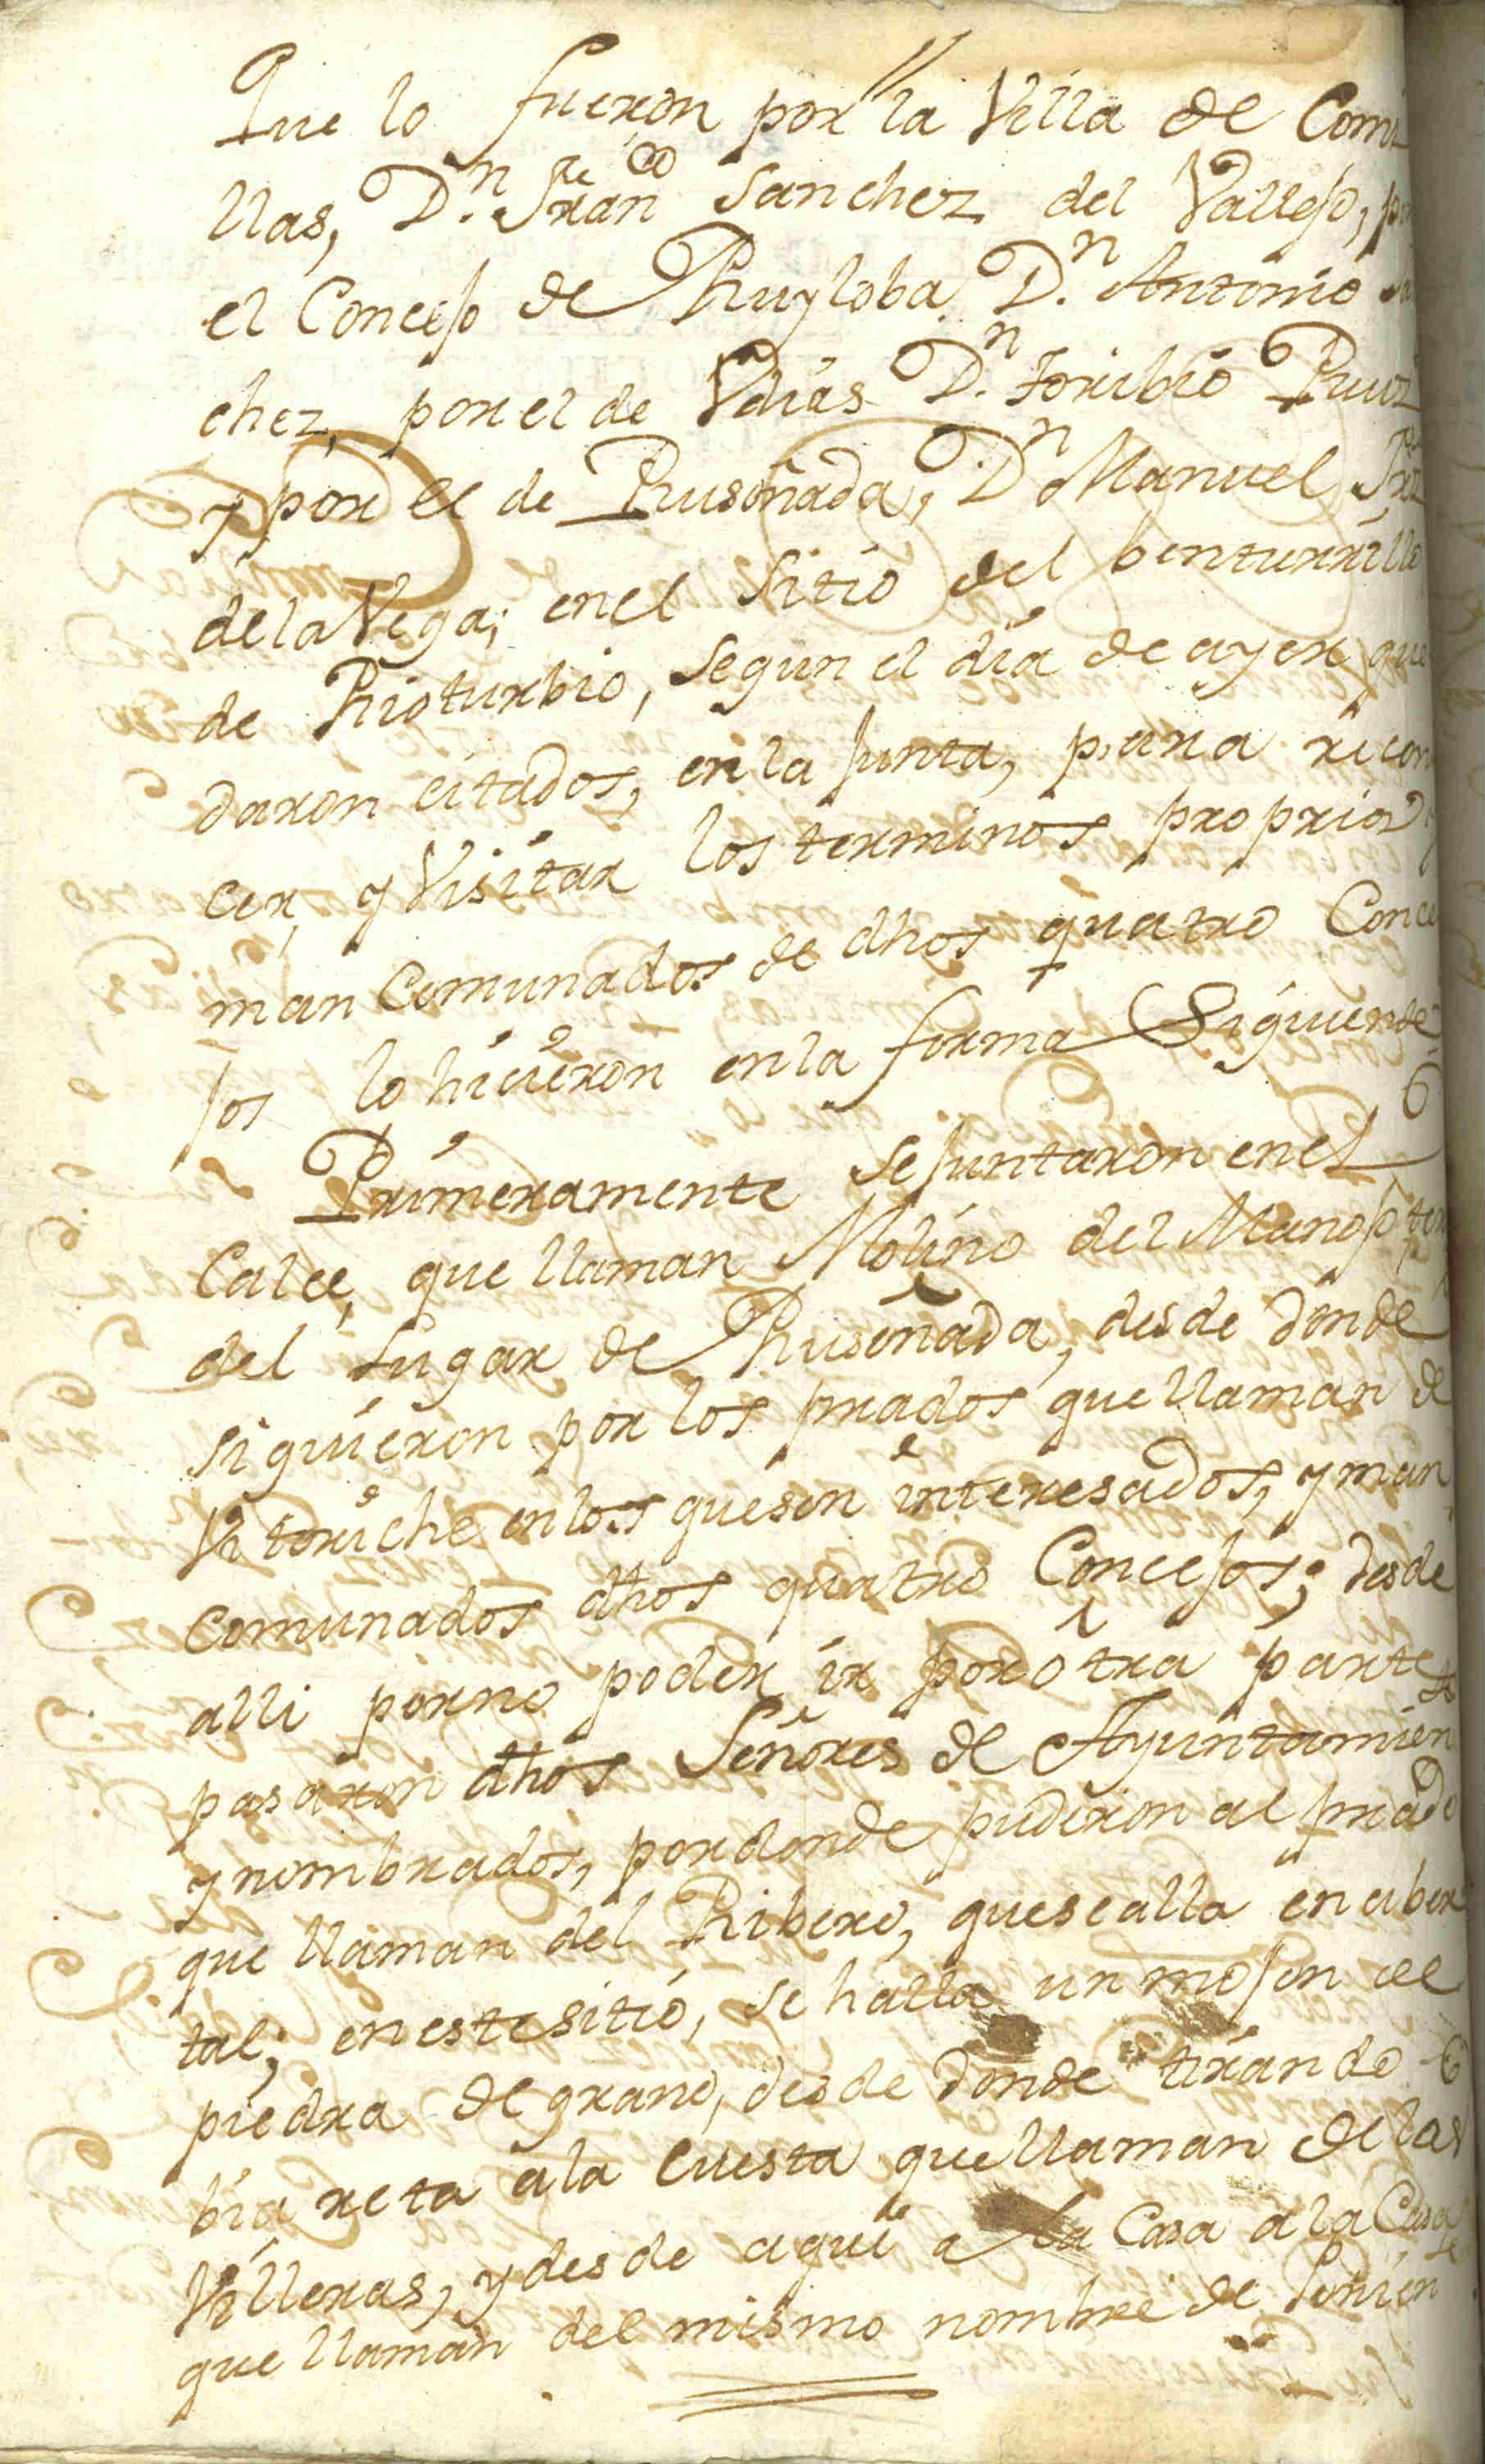 Que lo fueron por la Villa de Comi
llas, D.n Fran.co Sanchez del Vallejo, po
el Concejo de Ruyloba D.n Antonio
chez, por el de Vdias D.n Toribio Ruiz
y por el de Ruseñada, D.n Manuel
dela Vega; enel Sitio del benturrillo
de Rioturbio, Segun el dia de ayer que
daron citados, en la junta, para recon
cer, y Visitar los terminos proprios y
man Comunados de dhos quatro Conce
jos lo hicieron en la forma Siguiende
Primeramente Sejuntaron enel
Calce, que llaman Molino del Manojo
del Lugar de Ruseñada, desde donde
siguieron por los prados que llaman de
Vitoriche en los que son interesados, y man
comunados dhos quatro Concejos; desde
alli por no poder ir por otra parte
pasaron dhos Señores de Ayuntamien
y nombrados, por donde pudieron al prado
que llaman del Ribero, quesealla en aber
tal; eneste sitio, se halla un mojon de
piedra de grano, desde donde tirando
bia reta ala Cuesta que llaman de las
Villeras, y desde aqui a la Casa a la Casa
que llaman del mismo nombre de